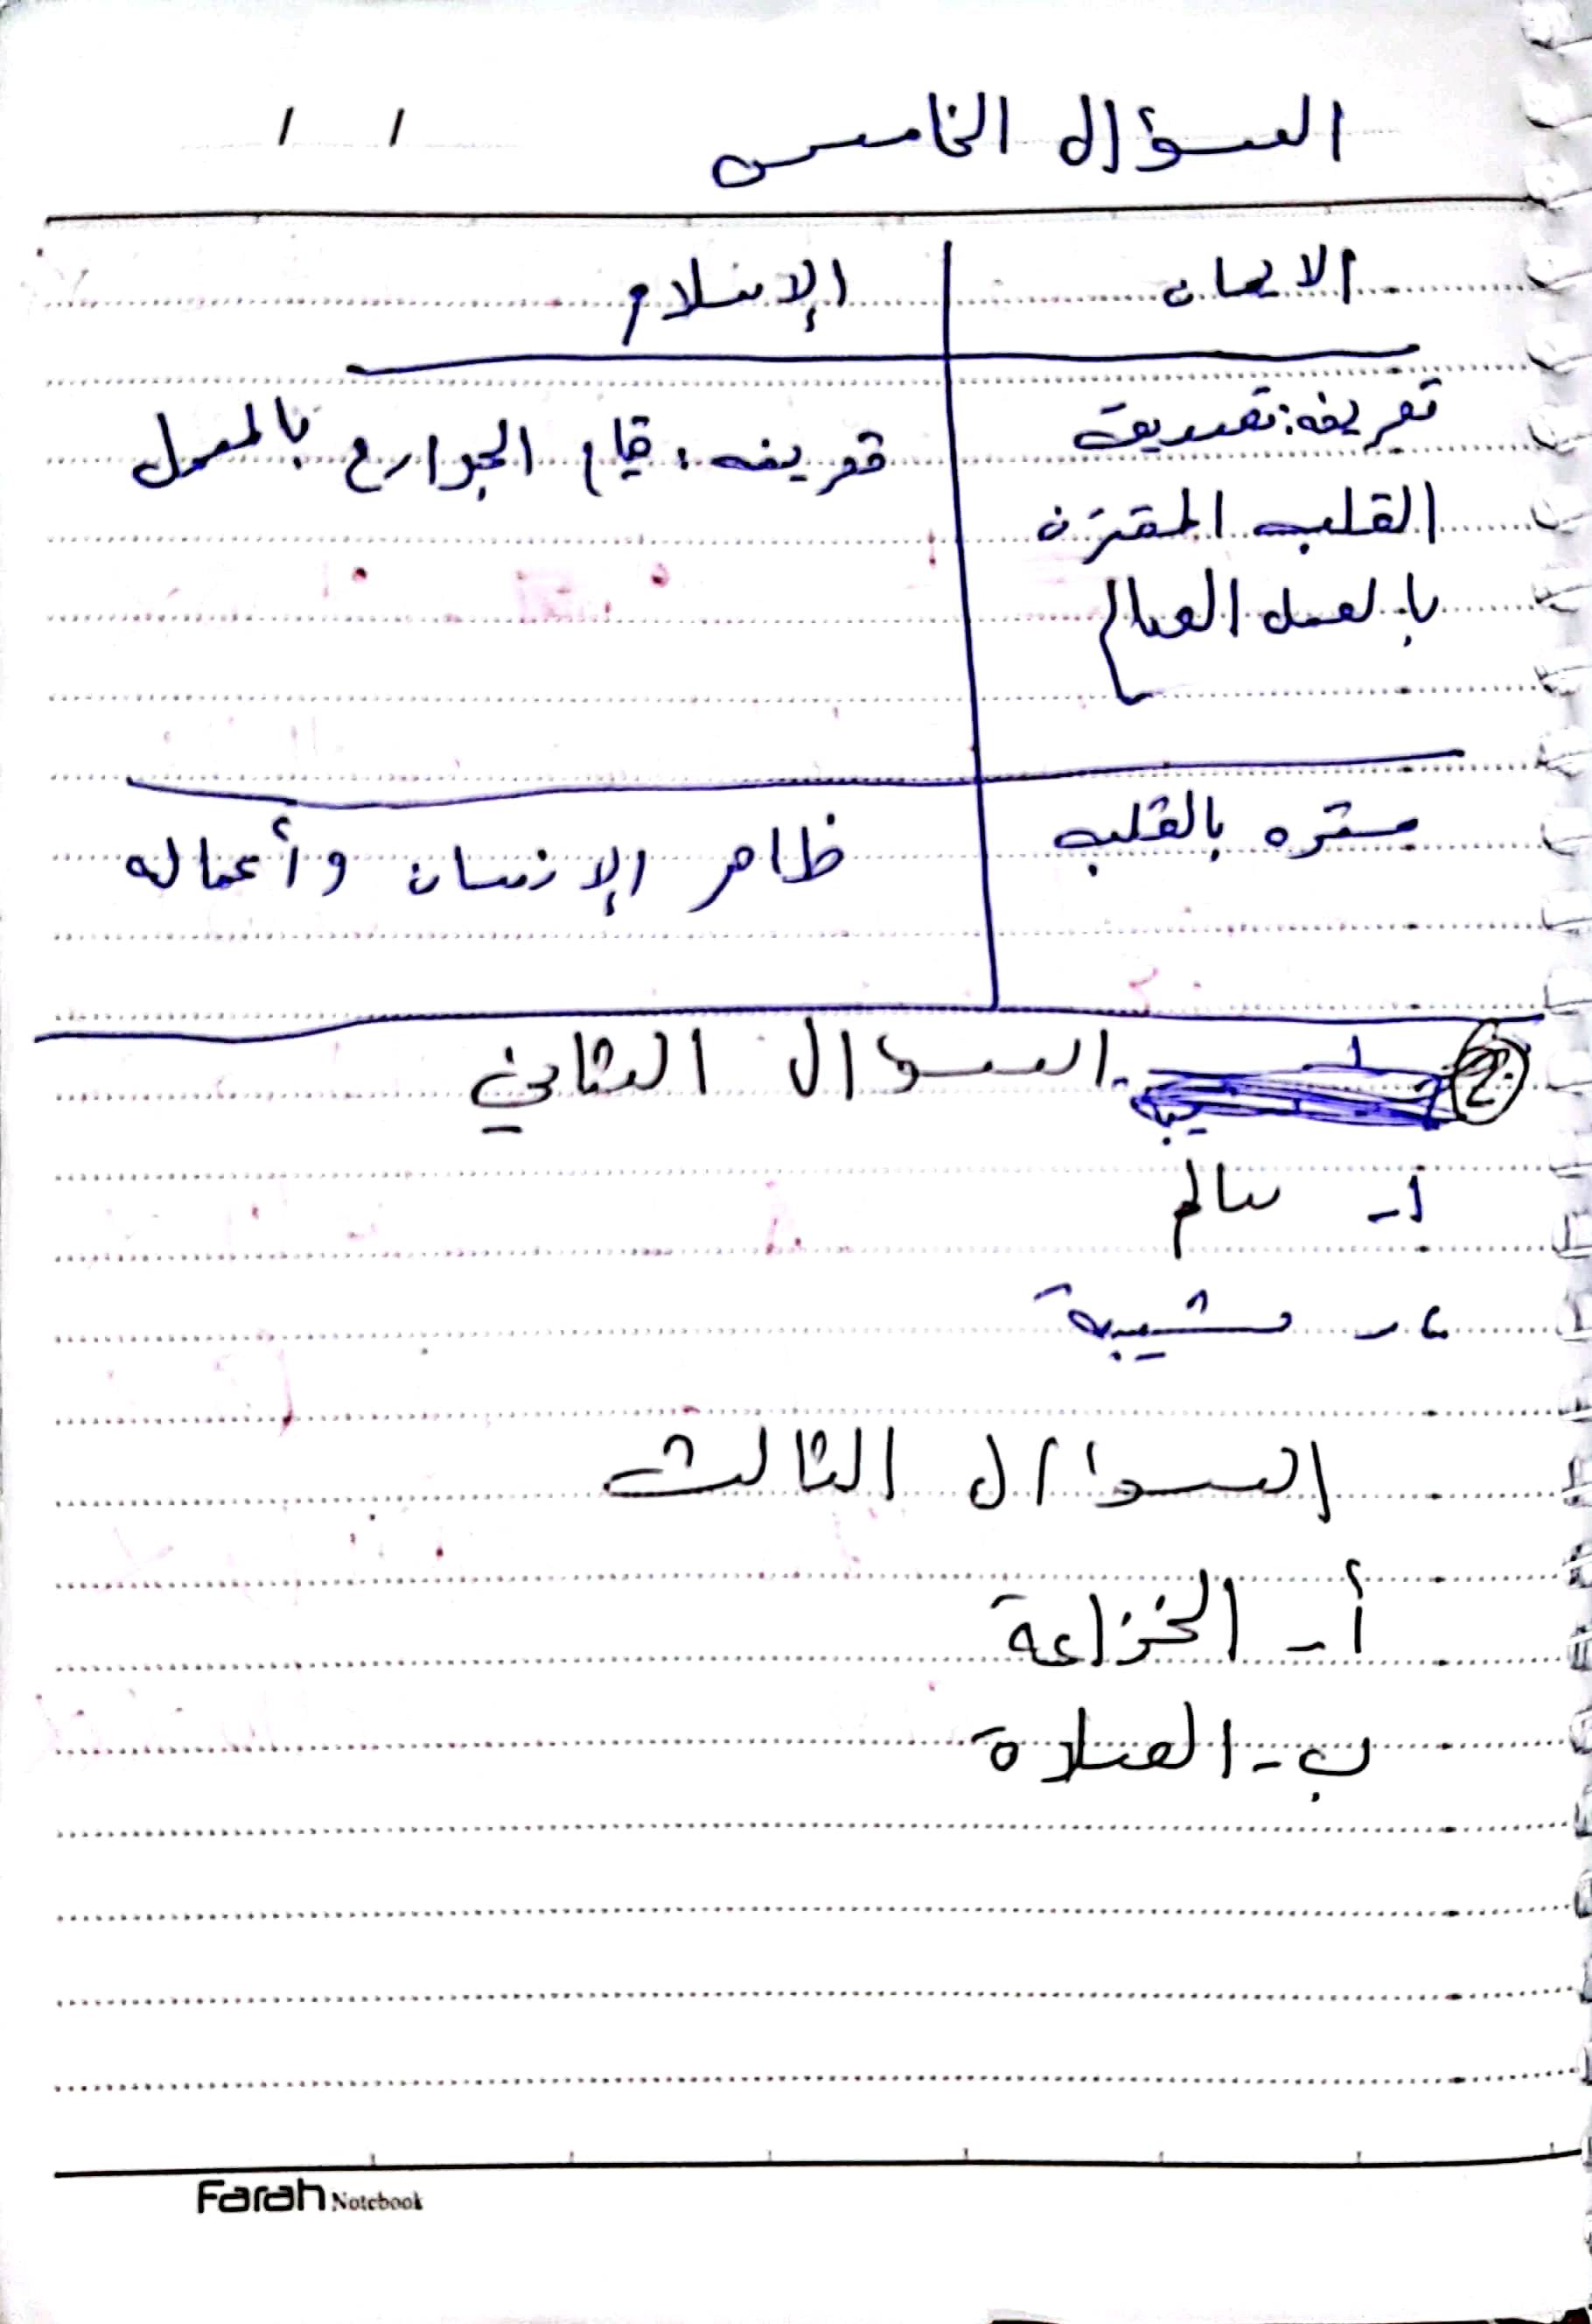 السؤال الخامس
/ /
الايمان
الإسلام
تعريفه: تصديق
القلب المقترن
بالعمل الصالح
تعريفه: قيام الجوارح بالعمل
مستقره بالقلب
ظاهر الإنسان وأعماله
2 السوال الثاني
1- سالم
2- شيبة
السوال الثالث
أ- الخزاعة
ب- الصلاة
Farah Notebook